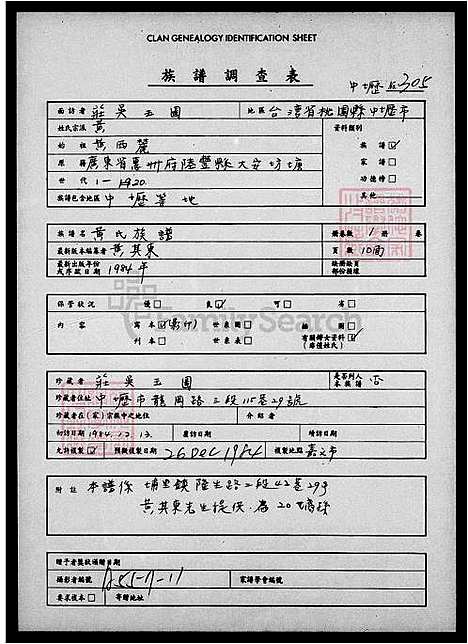 CLAN GENEALOGY IDENTIFICATION SHEET
族譜調查表
中壢 305
面訪者 莊吳玉圓 地區 台灣省桃園縣中壢市
姓氏宗派 黃 資料類別
始祖 黃西麓 族譜 ☑
原籍 廣東省惠州府陸豐縣大安坊塘 家譜 □
世代 1-20 功德榜 □
族譜包含地區 中壢等地 其他
族譜名 黃氏族譜 冊卷數 1 冊 卷
最新版本編纂者 黃其東 頁數 10面
最新出版年份或序跋日期 1984年 缺掛缺頁部份摘錄
保管狀況 優□ 良☑ 可□ 劣□
內容 寫本☑(影印) 世表圖□ 插圖□
刊本□ 世系表□ 有關婦女資料☑(席僅姓氏)
FamilySearch
珍藏者 莊吳玉圓 是否列入本族譜 否
珍藏者住址 中壢市龍岡路三段115巷29號
珍藏者在(家)宗族中之地位 介紹者
初訪日期 1984.12.13. 覆訪日期 續訪日期
允許複製☑ 預擬複製日期 26 Dec 1984 複製地點 嘉義市
附註 本譜係 埔里鎮隆生路二段42巷29号
黃其東先生提供.為20
贈予者獎狀頒贈日期
攝影者編號 A55-11-11 家譜學會編號
要求複本□ 寄贈地址